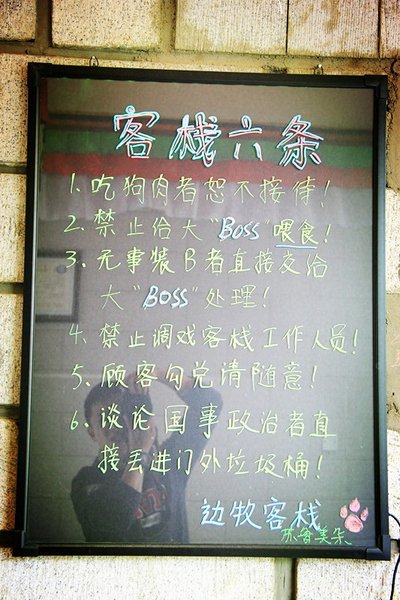 客栈六条
1. 吃狗肉者恕不接待！
2. 禁止给大“Boss”喂食！
3. 无事装B者直接交给
大“Boss”处理！
4. 禁止调戏客栈工作人员！
5. 顾客勾兑请随意！
6. 谈论国事政治者直
接丢进门外垃圾桶！
边牧客栈